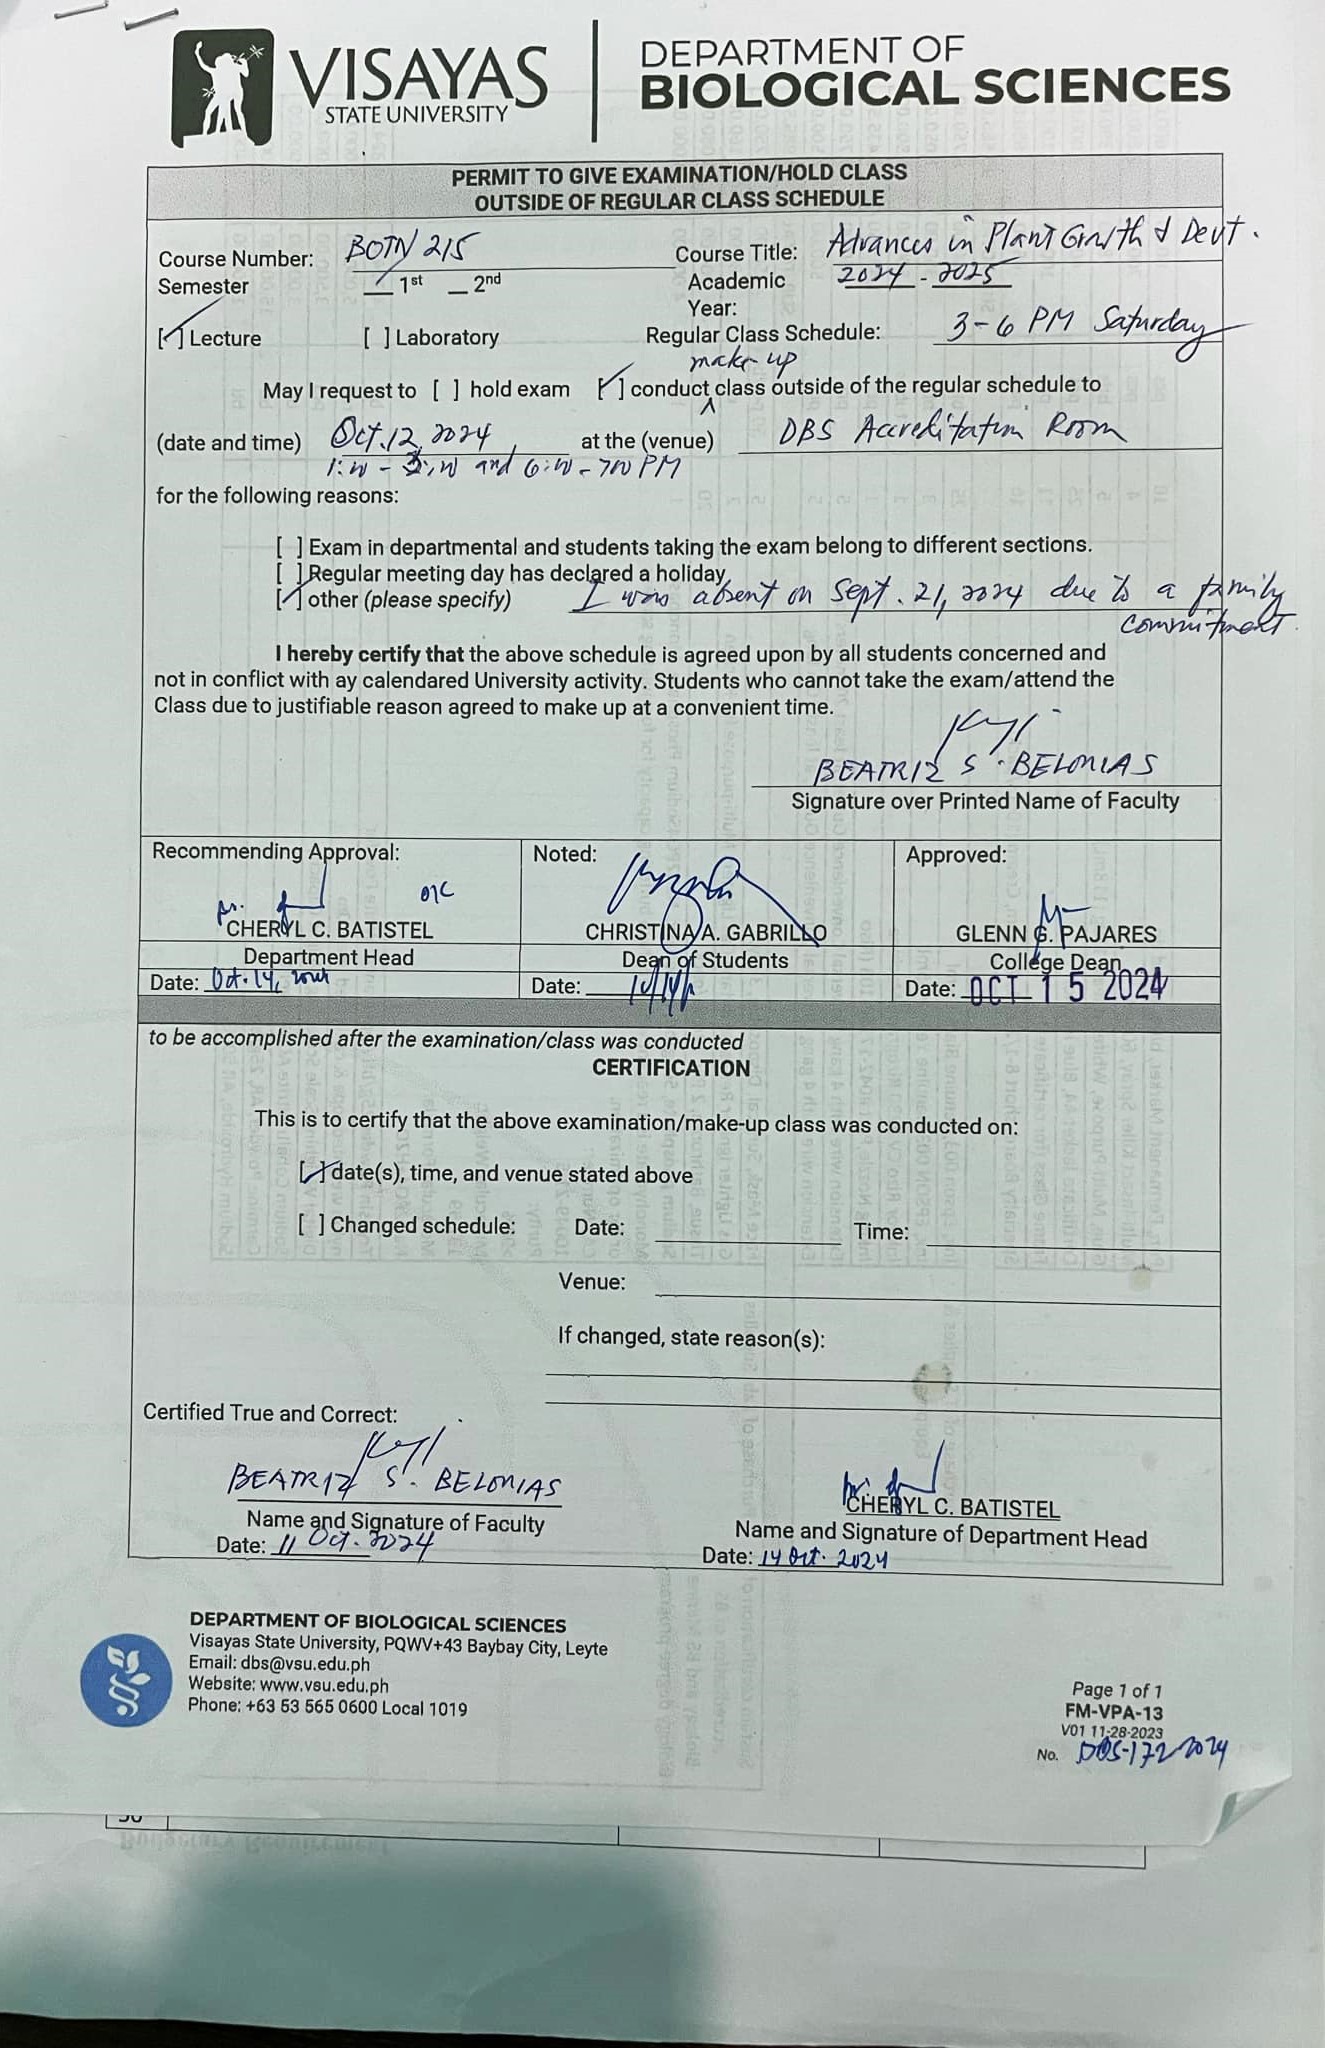 VISAYAS
STATE UNIVERSITY
DEPARTMENT OF
BIOLOGICAL SCIENCES
PERMIT TO GIVE EXAMINATION/HOLD CLASS
OUTSIDE OF REGULAR CLASS SCHEDULE
Course Number: BOTN 215 Course Title: Advances in Plant Growth & Devt.
Semester 1st 2nd Academic Year: 2024 - 2025
[/] Lecture [ ] Laboratory Regular Class Schedule: 3-6 PM Saturday
May I request to [ ] hold exam [/] conduct make-up class outside of the regular schedule to
(date and time) Oct. 12, 2024 at the (venue) DBS Accreditation Room
and PM
for the following reasons:
[ ] Exam in departmental and students taking the exam belong to different sections.
[ ] Regular meeting day has declared a holiday
[/] other (please specify) I was absent on Sept. 21, 2024 due to a family
commitment.
I hereby certify that the above schedule is agreed upon by all students concerned and
not in conflict with ay calendared University activity. Students who cannot take the exam/attend the
Class due to justifiable reason agreed to make up at a convenient time.
BEATRIZ S. BELONIAS
Signature over Printed Name of Faculty
Recommending Approval: Noted: Approved:
OIC
CHERYL C. BATISTEL CHRISTINA A. GABRILLO GLENN G. PAJARES
Department Head Dean of Students College Dean
Date: Oct. 14, 2024 Date: Date: OCT 15 2024
to be accomplished after the examination/class was conducted
CERTIFICATION
This is to certify that the above examination/make-up class was conducted on:
[/] date(s), time, and venue stated above
[ ] Changed schedule: Date: Time:
Venue:
If changed, state reason(s):
Certified True and Correct:
BEATRIZ S. BELONIAS
CHERYL C. BATISTEL
Name and Signature of Faculty
Name and Signature of Department Head
Date: 11 Oct. 2024
Date: 14 Oct. 2024
DEPARTMENT OF BIOLOGICAL SCIENCES
Visayas State University, PQWV+43 Baybay City, Leyte
Email: dbs@vsu.edu.ph
Website: www.vsu.edu.ph
Phone: +63 53 565 0600 Local 1019
Page 1 of 1
FM-VPA-13
V01 11-28-2023
No. DOS-172-2024
Budgetary Requirement